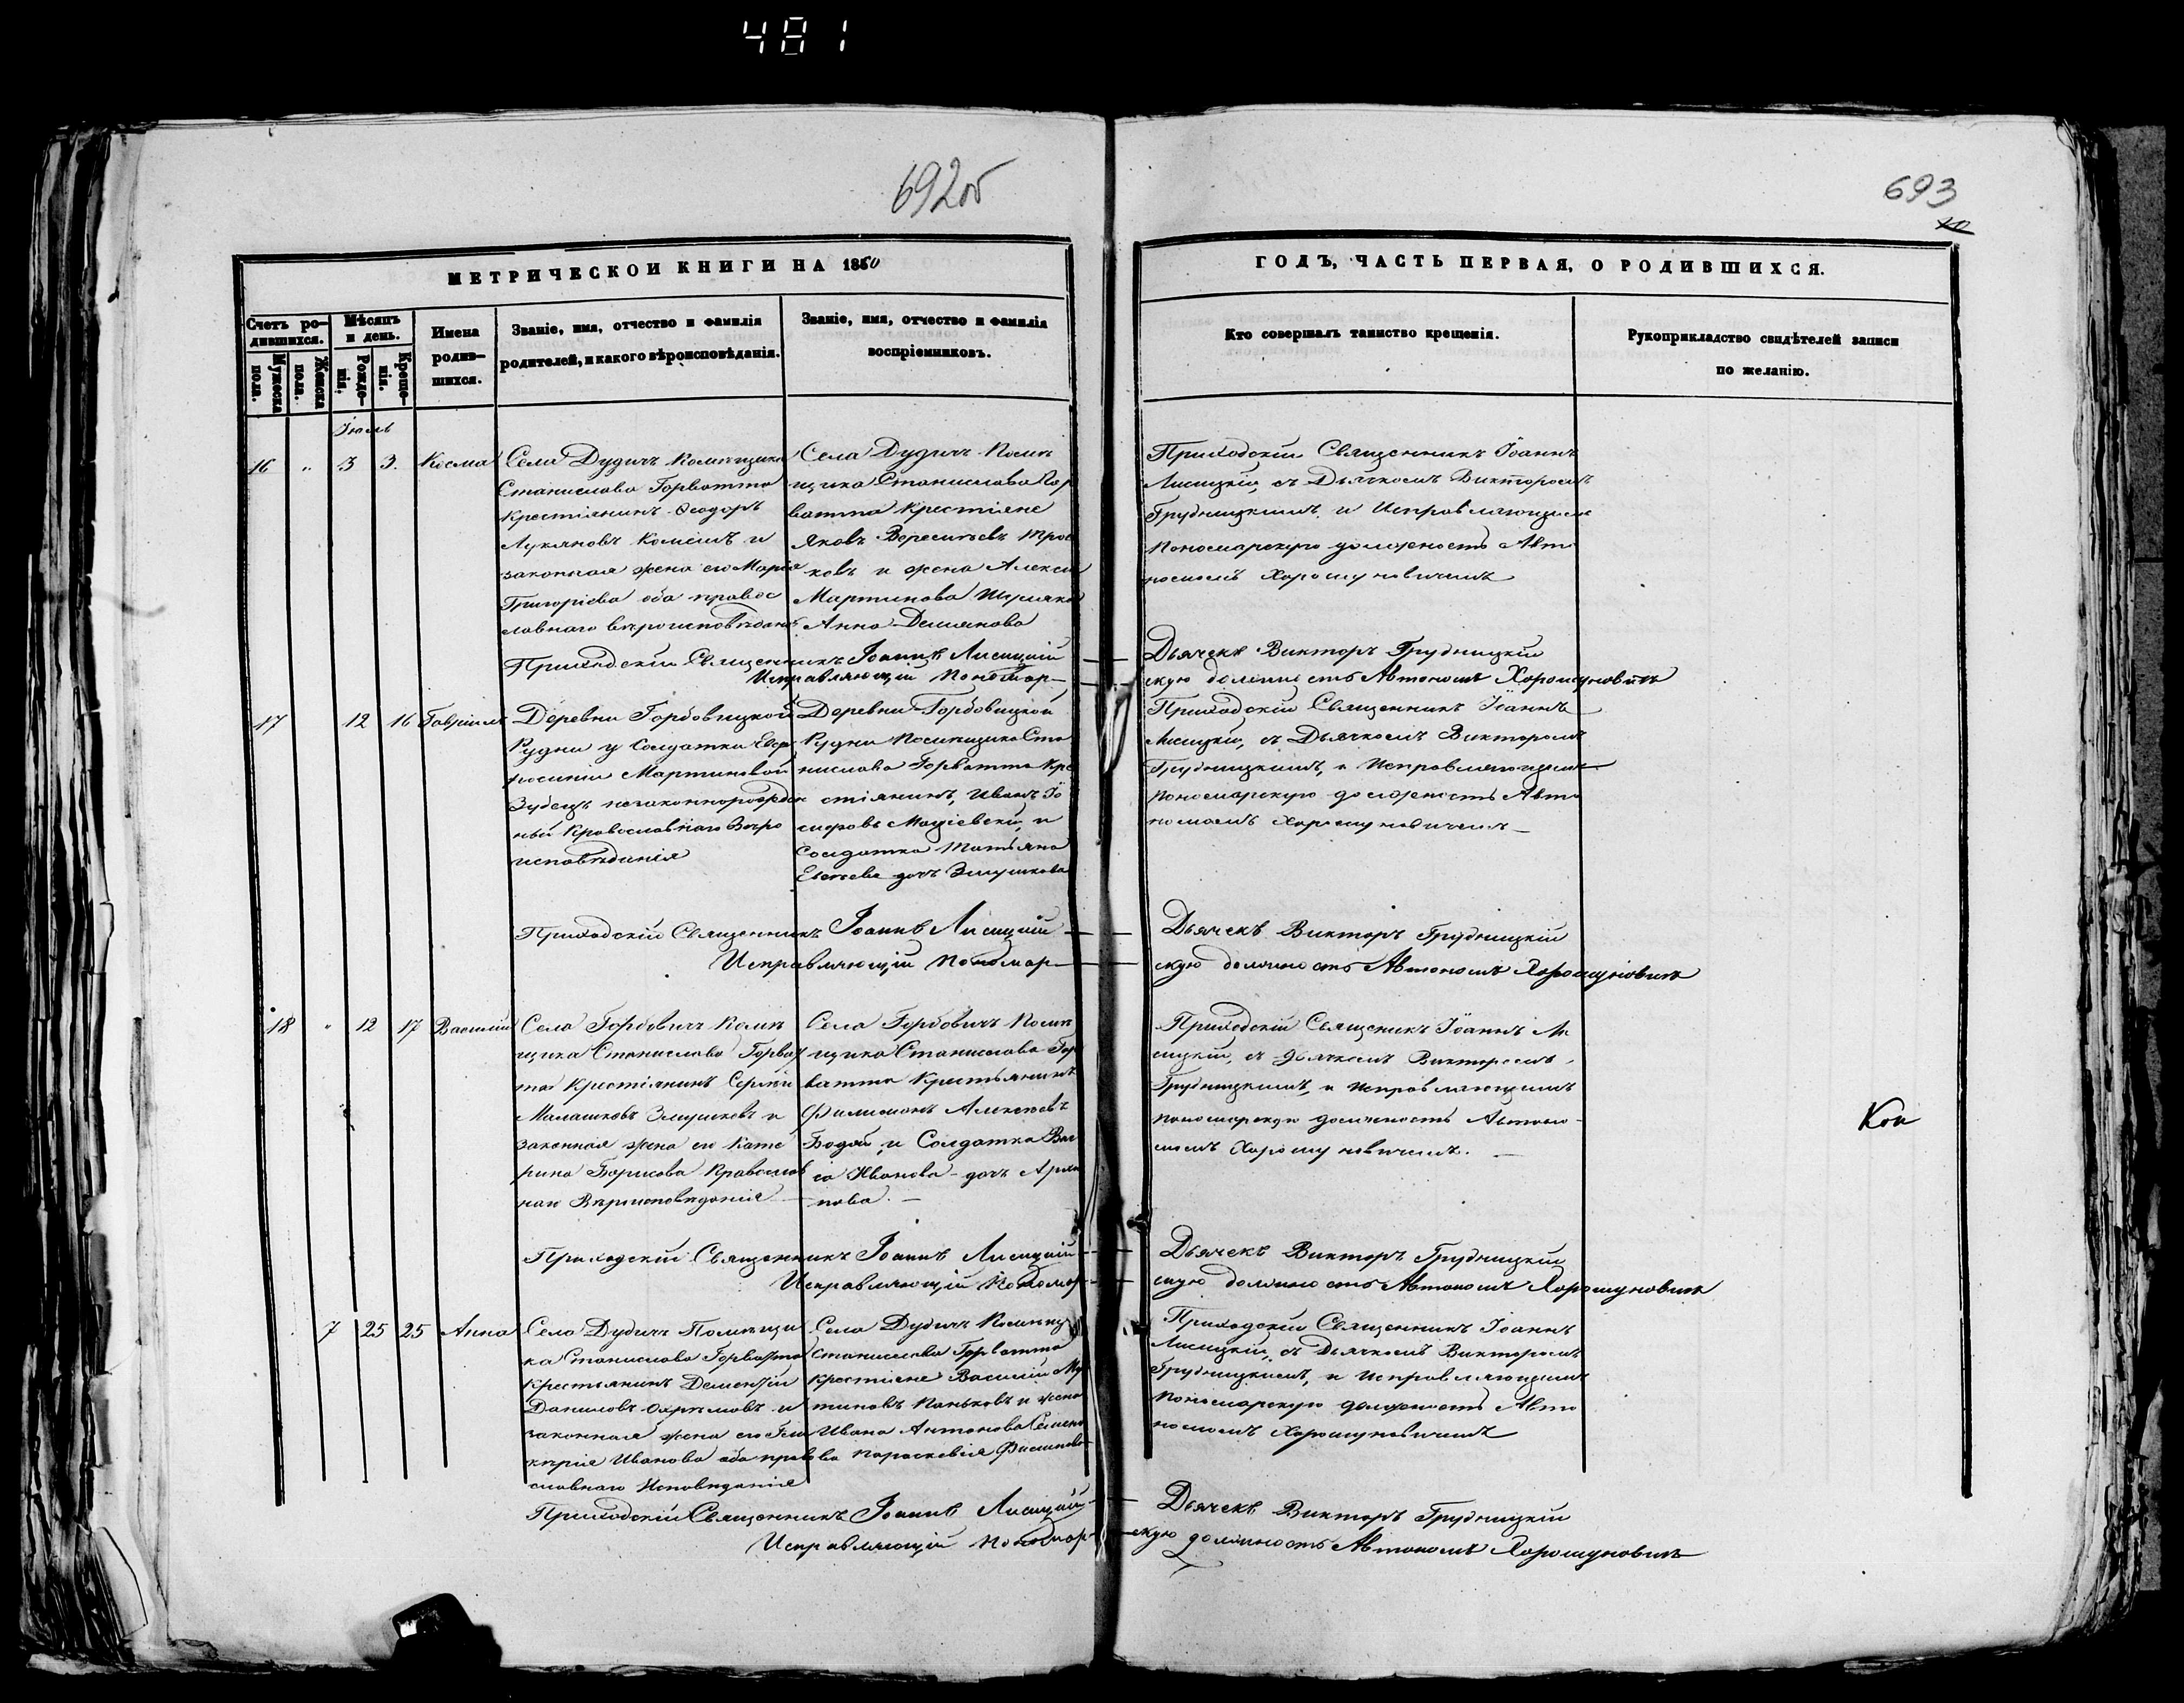 481
692об
693
МЕТРИЧЕСКОЙ КНИГИ НА 1860
ГОДЪ, ЧАСТЬ ПЕРВАЯ, О РОДИВШИХСЯ.
Счетъ ро-
дившихся.
Мужеска
пола.
Женска
пола.
Мѣсяцъ
и день.
Рожде-
нія.
Креще-
нія.
Имена
родив-
шихся.
Званіе, имя, отчество и фамилія
родителей, и какого вѣроисповѣданія.
Званіе, имя, отчество и фамилія
воспріемниковъ.
Кто совершалъ таинство крещенія.
Рукоприкладство свидѣтелей записи
по желанію.
Іюль
16 " 3 3. Косма
Села Дудичъ Помѣщика
Станислава Горватта
Крестіянинъ Ѳеодоръ
Лукяновъ и
законная жена его Марія
Григоріева оба правос
лавнаго вѣроисповѣданія
Села Дудичъ Помѣ
щика Станислава Гор
ватта Крестіяне
Яковъ
ковъ и жена Алексѣя
Мартинова
Анна Демянова
Приходскій Священникъ Іоаннъ
Лисицкій, съ Дьячкомъ Викторомъ
Грудницкимъ, и Исправляющимъ
Пономарскую должность Авто
номомъ Хорошуновичемъ
Приходскій Священникъ Іоаннъ Лисицкій — Дьячекъ Викторъ Грудницкій
Исправляющій Пономар- скую должность Автономъ Хорошуновичъ
17 12 16 Гавріилъ
Деревни Горбовицкой
Рудни у Солдатки Евфр
росиніи Мартиновой
Зубецъ незаконнорожден
ный Православнаго Вѣро
исповѣданія
Деревни Горбовицкой
Рудни Помѣщика Ста
нислава Горватта Кре
стіянинъ, Иванъ Іо
сифовъ Мацѣевскій, и
Солдатка Татьяна
дочь Змушкова
Приходскій Священникъ Іоаннъ
Лисицкій, съ Дьячкомъ Викторомъ
Грудницкимъ, и Исправляющимъ
Пономарскую должность Авто
номомъ Хорошуновичемъ —
Приходскій Священникъ Іоаннъ Лисицкій — Дьячекъ Викторъ Грудницкій
Исправляющій Пономар- скую должность Автономъ Хорошуновичъ
18 " 12 17 Василій
Села Горбовичъ Помѣ
щика Станислава Горват
та Крестіянинъ Сергѣй
Малашковъ Змушковъ и
законная жена его Кате
рина Борисова Православ
наго Вѣроисповѣданія —
Села Горбовичъ Помѣ
щика Станислава Гор
ватта Крестьянинъ
Филимонъ Алексѣевъ
и Солдатка
Иванова дочь
нова. —
Приходскій Священникъ Іоаннъ Ли
сицкій, съ дьячкомъ Викторомъ
Грудницкимъ, и Исправляющимъ
Пономарскую должность Автоно-
момъ Хорошуновичемъ. —
Приходскій Священникъ Іоаннъ Лисицкій — Дьячекъ Викторъ Грудницкій
Исправляющій Пономар- скую должность Автономъ Хорошуновичъ
7 25 25 Анна
Села Дудичъ Помѣщи
ка Станислава Горватта
Крестьянинъ Дементій
Даниловъ и
законная жена его Гли
керія Иванова оба право
славнаго Исповѣданія
Села Дудичъ
Станислава Горватта
Крестіяне Василій
Паньковъ и жена
Ивана Антонова
Параскевія
Приходскій Священникъ Іоаннъ
Лисицкій, съ Дьячкомъ Викторомъ
Грудницкимъ, и Исправляющимъ
Пономарскую должность Авто
номомъ Хорошуновичемъ
Приходскій Священникъ Іоаннъ Лисицкій — Дьячекъ Викторъ Грудницкій
Исправляющій Пономар- скую должность Автономъ Хорошуновичъ